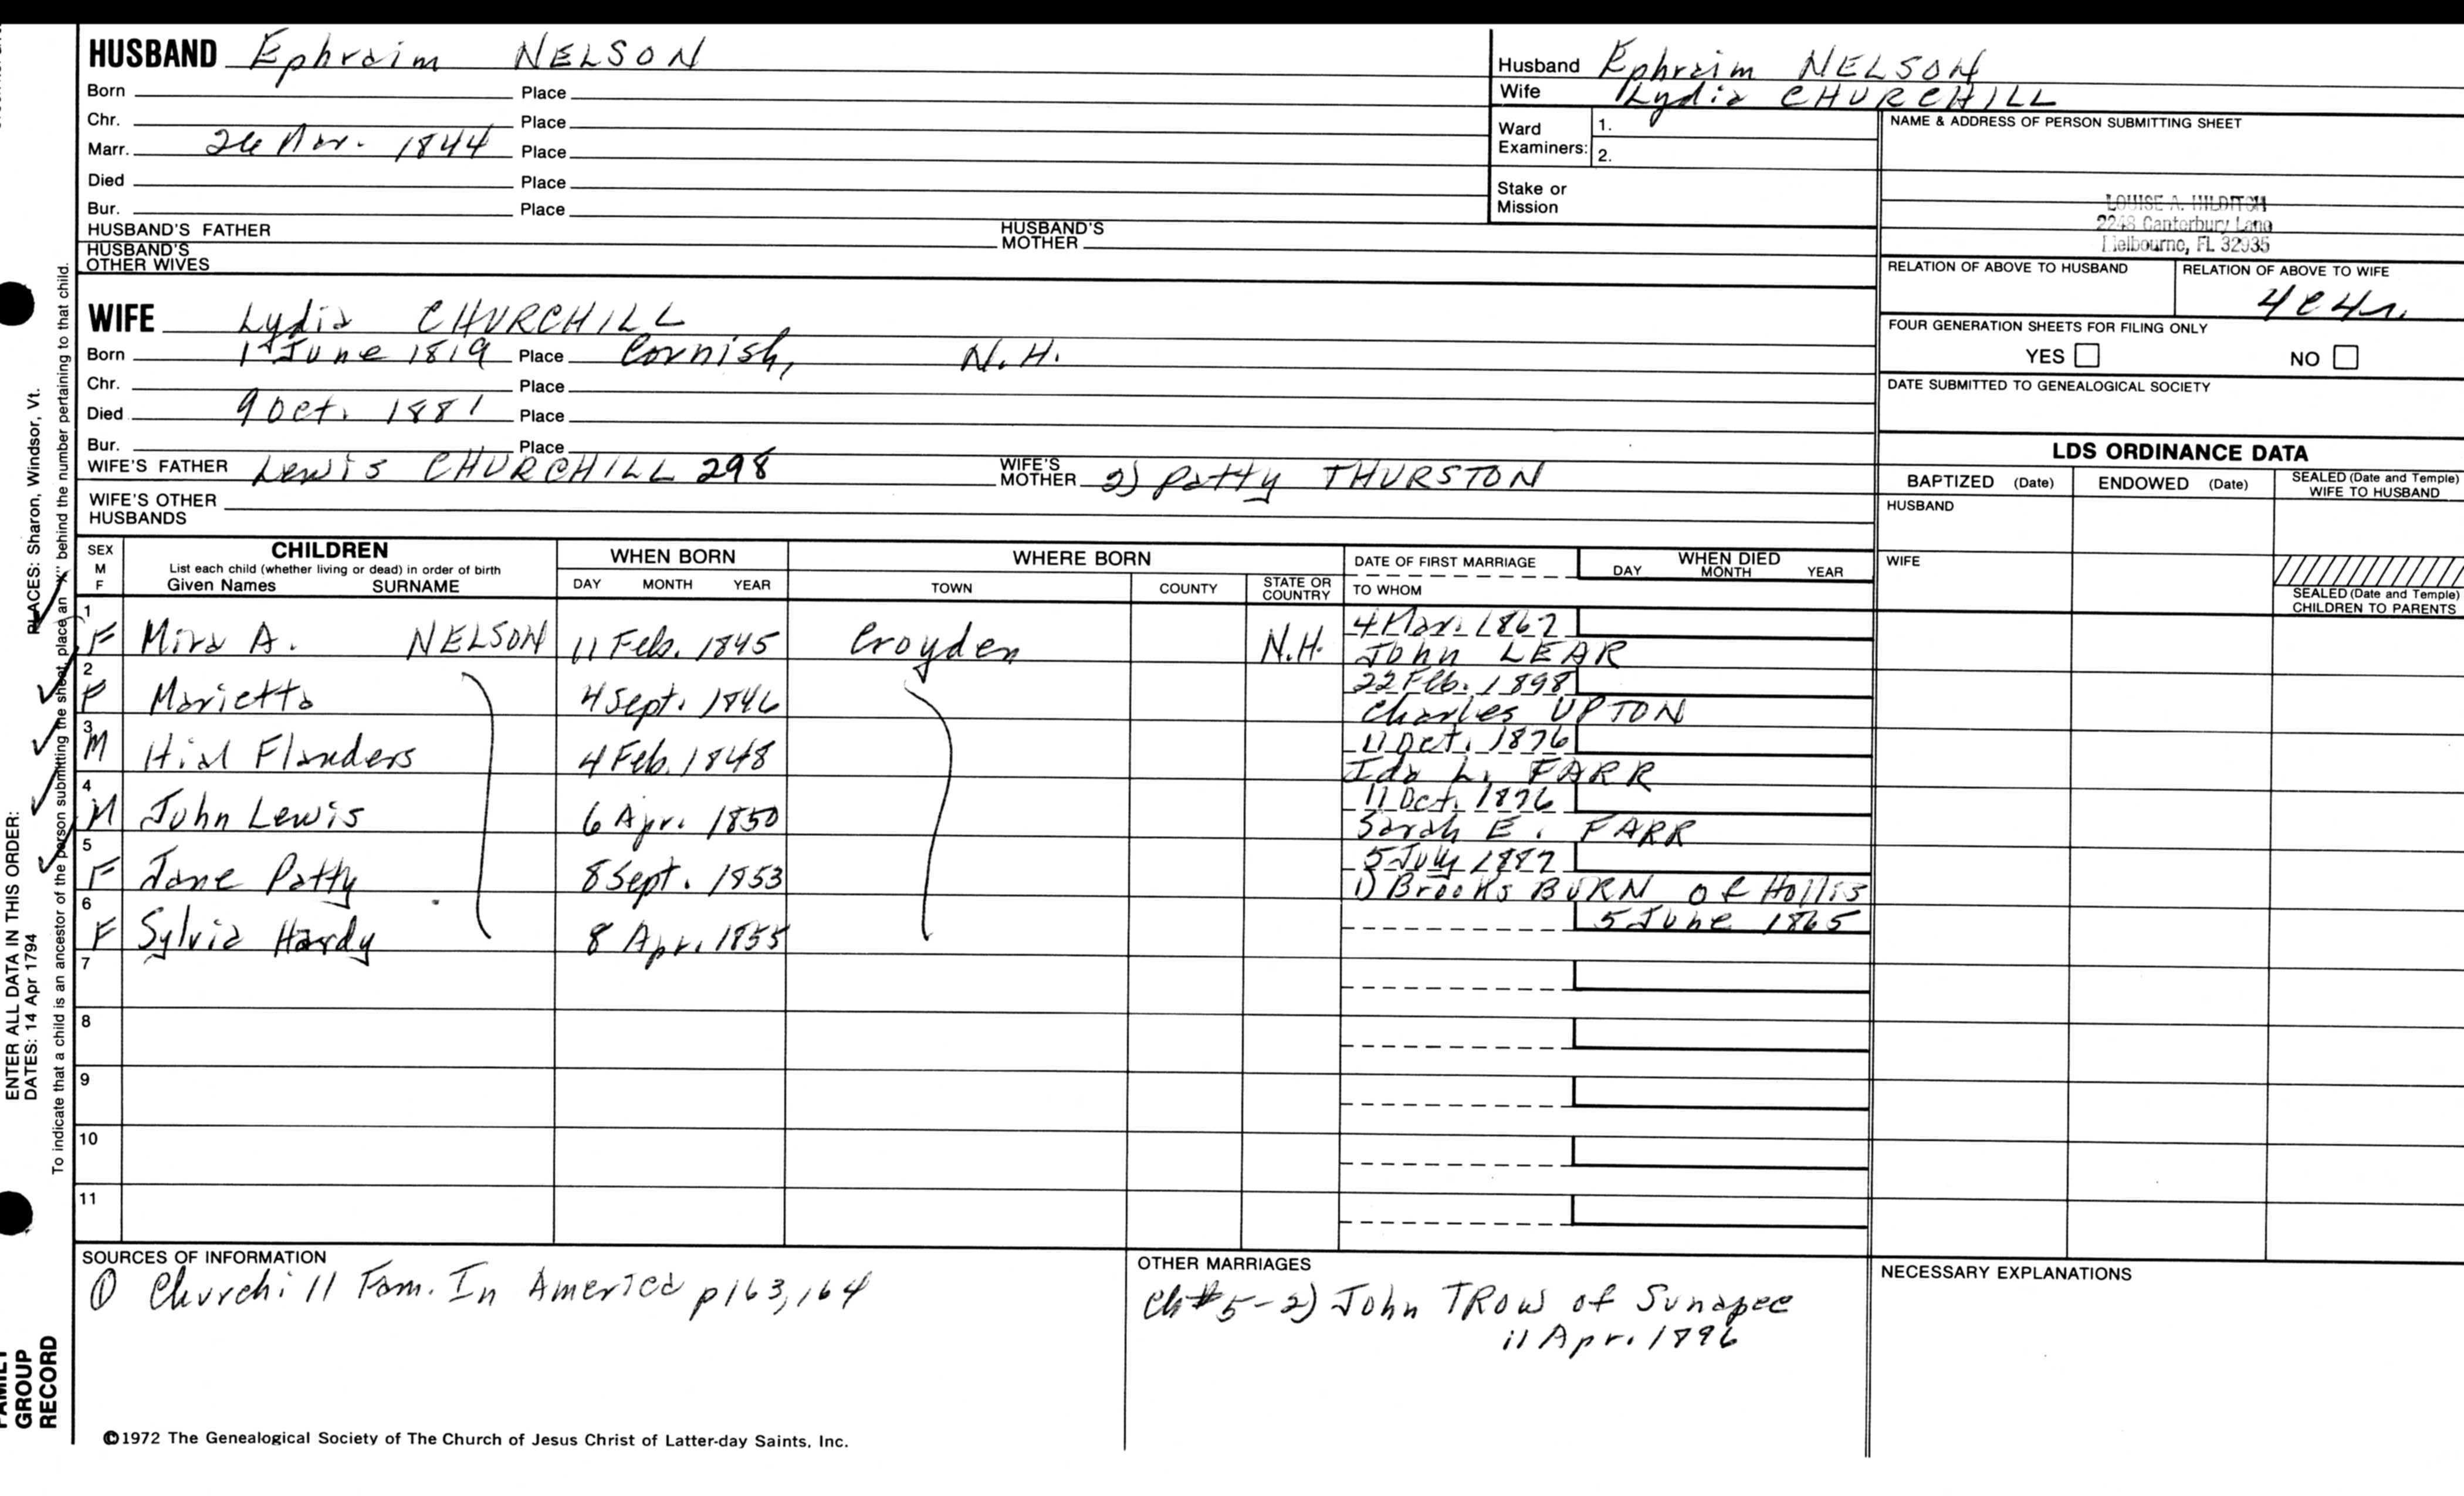 HUSBAND Ephraim NELSON
Born Place
Chr. Place
Marr. 26 Mar. 1844 Place
Died Place
Bur. Place
HUSBAND'S FATHER HUSBAND'S MOTHER
HUSBAND'S OTHER WIVES
Husband Ephraim NELSON
Wife Lydia CHURCHILL
Ward Examiners: 1.
2.
Stake or Mission
NAME & ADDRESS OF PERSON SUBMITTING SHEET
LOUISE A. HILDITCH
2248 Canterbury Lane
Melbourne, FL 32935
RELATION OF ABOVE TO HUSBAND RELATION OF ABOVE TO WIFE
4c4r.
FOUR GENERATION SHEETS FOR FILING ONLY
YES NO
DATE SUBMITTED TO GENEALOGICAL SOCIETY
WIFE Lydia CHURCHILL
Born 1 June 1819 Place Cornish, N.H.
Chr. Place
Died 9 Oct. 1881 Place
Bur. Place
WIFE'S FATHER Lewis CHURCHILL 298 WIFE'S MOTHER 2) Patty THURSTON
WIFE'S OTHER HUSBANDS
LDS ORDINANCE DATA
BAPTIZED (Date) ENDOWED (Date) SEALED (Date and Temple) WIFE TO HUSBAND
HUSBAND
WIFE
SEALED (Date and Temple) CHILDREN TO PARENTS
SEX M F CHILDREN WHEN BORN WHERE BORN DATE OF FIRST MARRIAGE WHEN DIED
List each child (whether living or dead) in order of birth
Given Names SURNAME DAY MONTH YEAR TOWN COUNTY STATE OR COUNTRY TO WHOM DAY MONTH YEAR
1 F Mira A. NELSON 11 Feb. 1845 Croyden N.H. 4 Mar. 1867
John LEAR
2 F Marietta 4 Sept. 1846 22 Feb. 1898
Charles UPTON
3 M Hial Flanders 4 Feb. 1848 11 Oct. 1876
Ida L. FARR
4 M John Lewis 6 Apr. 1850 11 Oct. 1876
Sarah E. FARR
5 F Jane Patty 8 Sept. 1853 5 July 1887
1) Brooks BURN of Hollis
6 F Sylvia Hardy 8 Apr. 1855 5 June 1865
7
8
9
10
11
SOURCES OF INFORMATION
① Churchill Fam. In America p163,164
OTHER MARRIAGES
Ch#5-2) John TROW of Sunapee
11 Apr. 1896
NECESSARY EXPLANATIONS
©1972 The Genealogical Society of The Church of Jesus Christ of Latter-day Saints, Inc.
FAMILY GROUP RECORD
ENTER ALL DATA IN THIS ORDER:
DATES: 14 Apr 1794 PLACES: Sharon, Windsor, Vt.
To indicate that a child is an ancestor of the person submitting the sheet, place an "X" behind the number pertaining to that child.